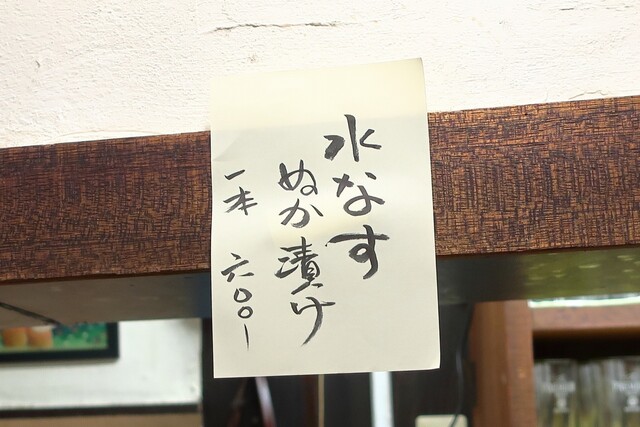 水なす
ぬか漬け
一本 六〇〇-